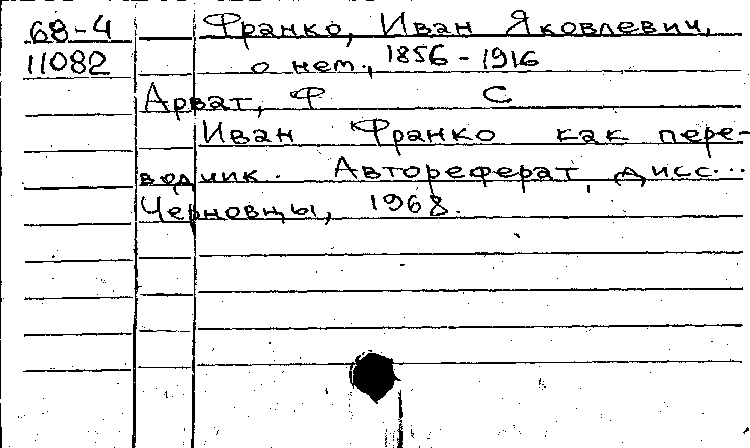 68-4 Франко, Иван Яковлевич,
11082 о нем, 1856-1916
Арват, Ф С
Иван Франко как пере-
водчик. Автореферат дисс...
Черновцы, 1968.